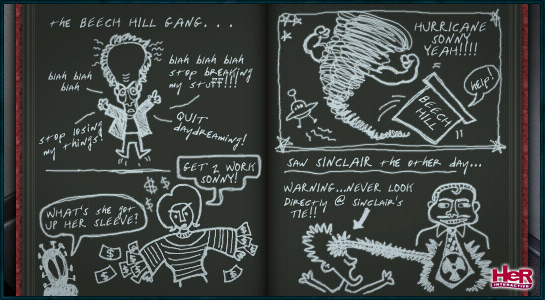 the BEECH HILL GANG...
blah blah
blah
blah blah blah
stop breaking
my stuff!!!
stop losing
my things!
QUIT
daydreaming!
GET 2 WORK
SONNY!
WHAT'S she got
UP HER SLEEVE?
$ $
$
HURRICANE
SONNY
YEAH!!!!
help!
BEECH
HILL
SAW SINCLAIR the other day...
WARNING...NEVER LOOK
DIRECTLY @ SINCLAIR'S
TIE!!
HeR
INTERACTIVE